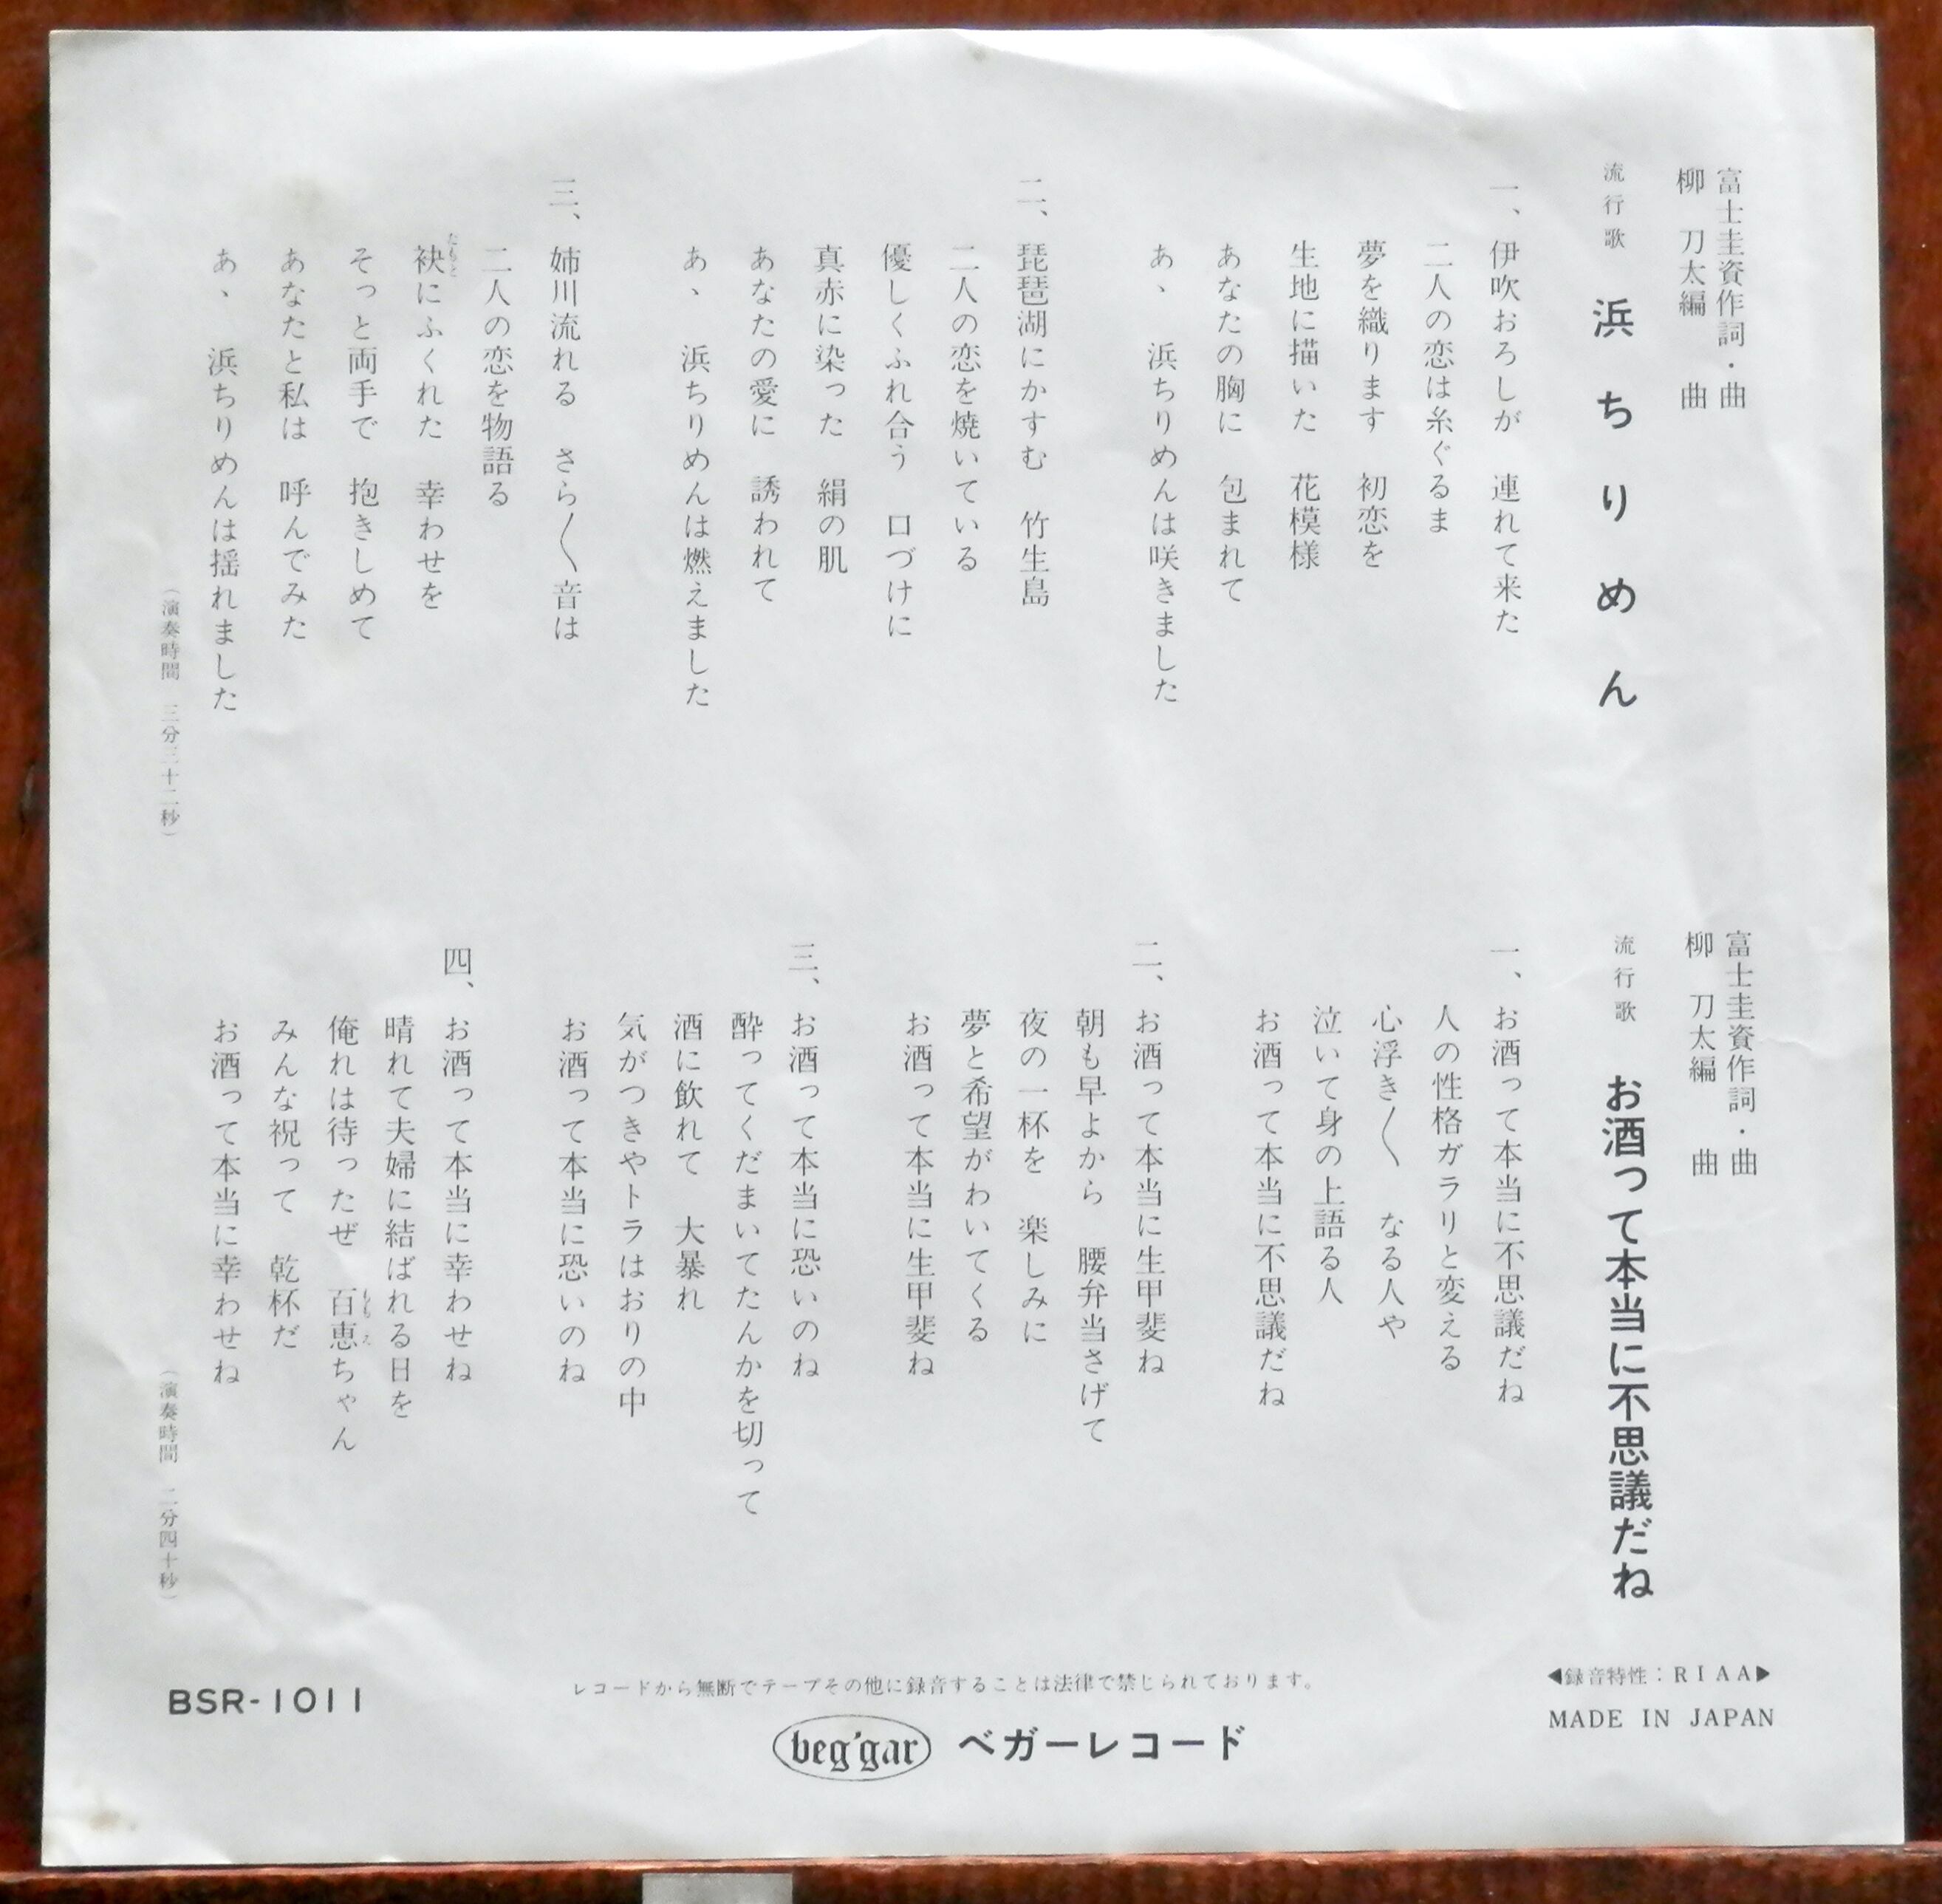 富士圭資作詞・曲
柳　刀太編　　曲
流行歌　浜ちりめん
一、伊吹おろしが　連れて来た
二人の恋は糸ぐるま
夢を織ります　初恋を
生地に描いた　花模様
あなたの胸に　包まれて
あゝ　浜ちりめんは咲きました
二、琵琶湖にかすむ　竹生島
二人の恋を焼いている
優しくふれ合う　口づけに
真赤に染った　絹の肌
あなたの愛に　誘われて
あゝ　浜ちりめんは燃えました
三、姉川流れる　さら〱音は
二人の恋を物語る
袂にふくれた　幸わせを
たもと
そっと両手で　抱きしめて
あなたと私は　呼んでみた
あゝ　浜ちりめんは揺れました
（演奏時間　三分三十二秒）
富士圭資作詞・曲
柳　刀太編　　曲
流行歌　お酒って本当に不思議だね
一、お酒って本当に不思議だね
人の性格ガラリと変える
心浮き〱　なる人や
泣いて身の上語る人
お酒って本当に不思議だね
二、お酒って本当に生甲斐ね
朝も早よから　腰弁当さげて
夜の一杯を　楽しみに
夢と希望がわいてくる
お酒って本当に生甲斐ね
三、お酒って本当に恐いのね
酔ってくだまいてたんかを切って
酒に飲れて　大暴れ
気がつきやトラはおりの中
お酒って本当に恐いのね
四、お酒って本当に幸わせね
晴れて夫婦に結ばれる日を
俺れは待ったぜ　百恵ちゃん
ももえ
みんな祝って　乾杯だ
お酒って本当に幸わせね
（演奏時間　二分四十秒）
◀録音特性：RIAA▶
MADE IN JAPAN
レコードから無断でテープその他に録音することは法律で禁じられております。
beg'gar ベガーレコード
BSR-1011